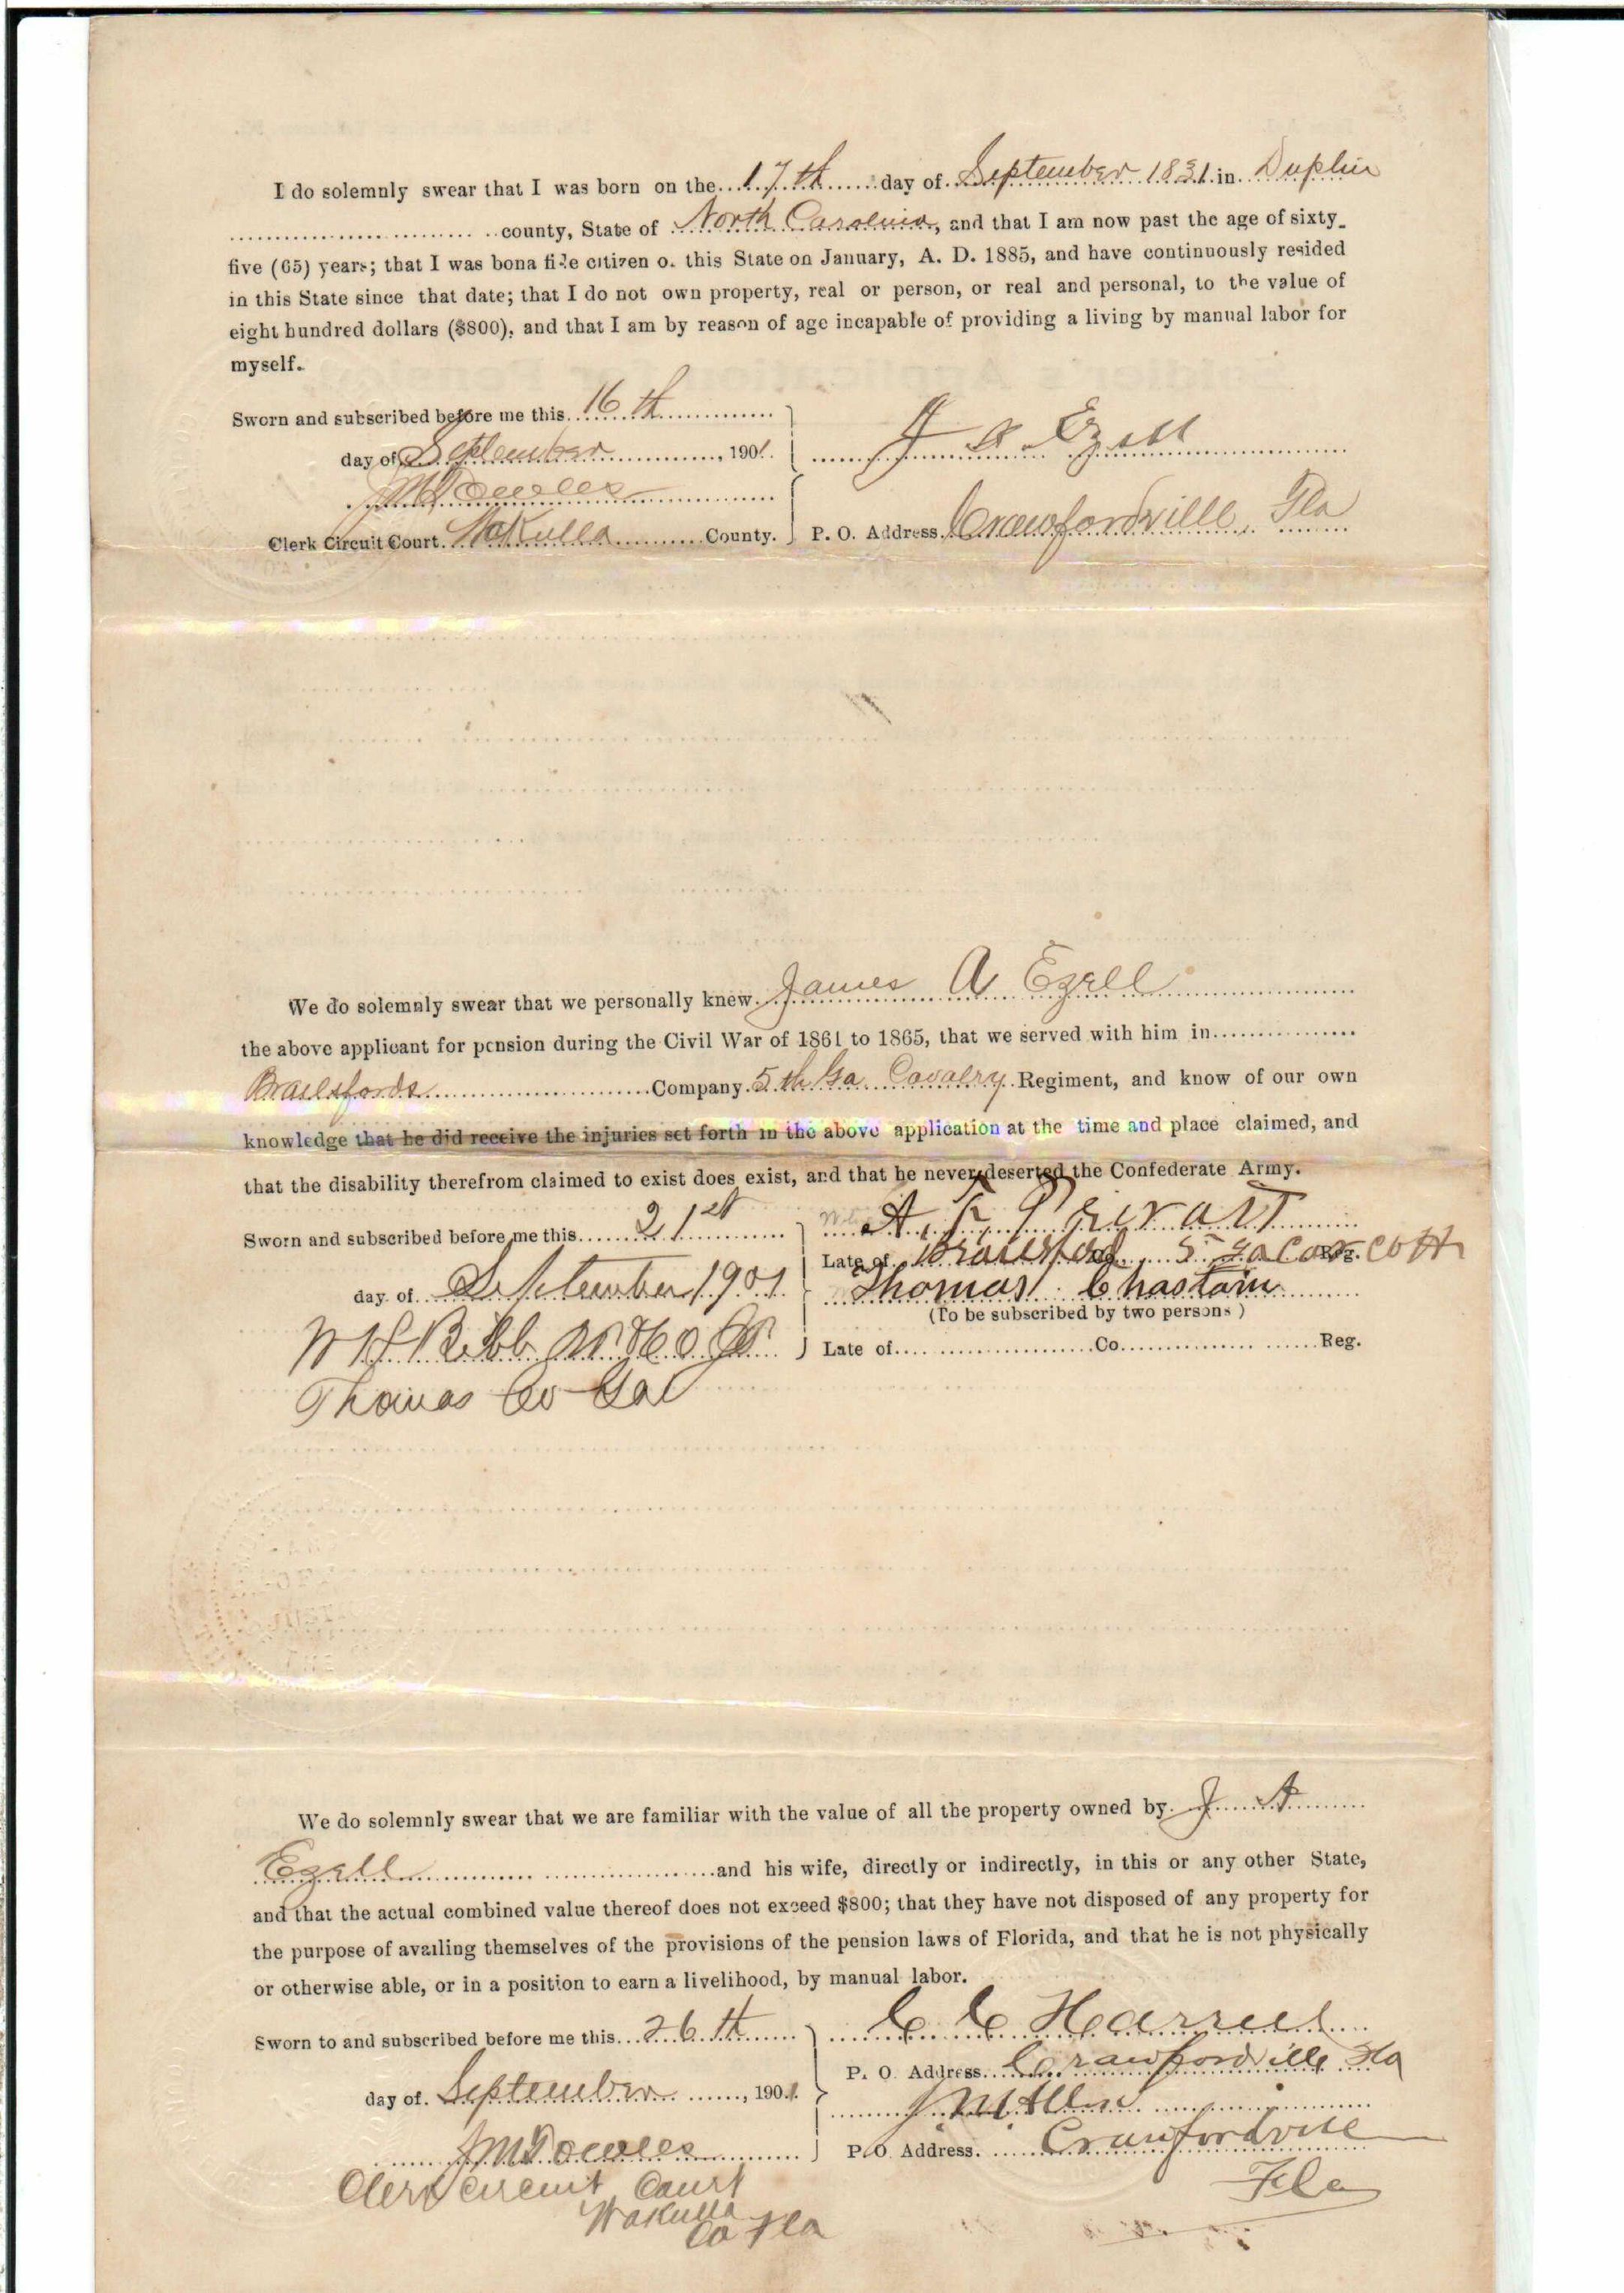 I do solemnly swear that I was born on the 17th day of September 1831 in Duplin
county, State of North Carolina, and that I am now past the age of sixty-
five (65) years; that I was bona fide citizen of this State on January, A. D. 1885, and have continuously resided
in this State since that date; that I do not own property, real or person, or real and personal, to the value of
eight hundred dollars ($800), and that I am by reason of age incapable of providing a living by manual labor for
myself.
Sworn and subscribed before me this 16th
day of September, 1901.
J A Ezell
Clerk Circuit Court Wakulla County.
P. O. Address Crawfordville, Fla
We do solemnly swear that we personally knew James A Ezell
the above applicant for pension during the Civil War of 1861 to 1865, that we served with him in
Brailsfords Company 5th Ga Cavalry Regiment, and know of our own
knowledge that he did receive the injuries set forth in the above application at the time and place claimed, and
that the disability therefrom claimed to exist does exist, and that he never deserted the Confederate Army.
Sworn and subscribed before me this 21st
day of September 1901
Late of Brailsford Co. 5 ga Cav Reg. Co H
Thomas Chastain
(To be subscribed by two persons)
W H Bibb
Late of Co. Reg.
Thomas Co Ga
We do solemnly swear that we are familiar with the value of all the property owned by J A
Ezell and his wife, directly or indirectly, in this or any other State,
and that the actual combined value thereof does not exceed $800; that they have not disposed of any property for
the purpose of availing themselves of the provisions of the pension laws of Florida, and that he is not physically
or otherwise able, or in a position to earn a livelihood, by manual labor.
Sworn to and subscribed before me this 26th
C C Harrell
P. O. Address Crawfordville Fla
day of September, 1901.
J M Allen
P. O. Address. Crawfordville
Fla
Clerk Circuit Court
Wakulla
Co Fla